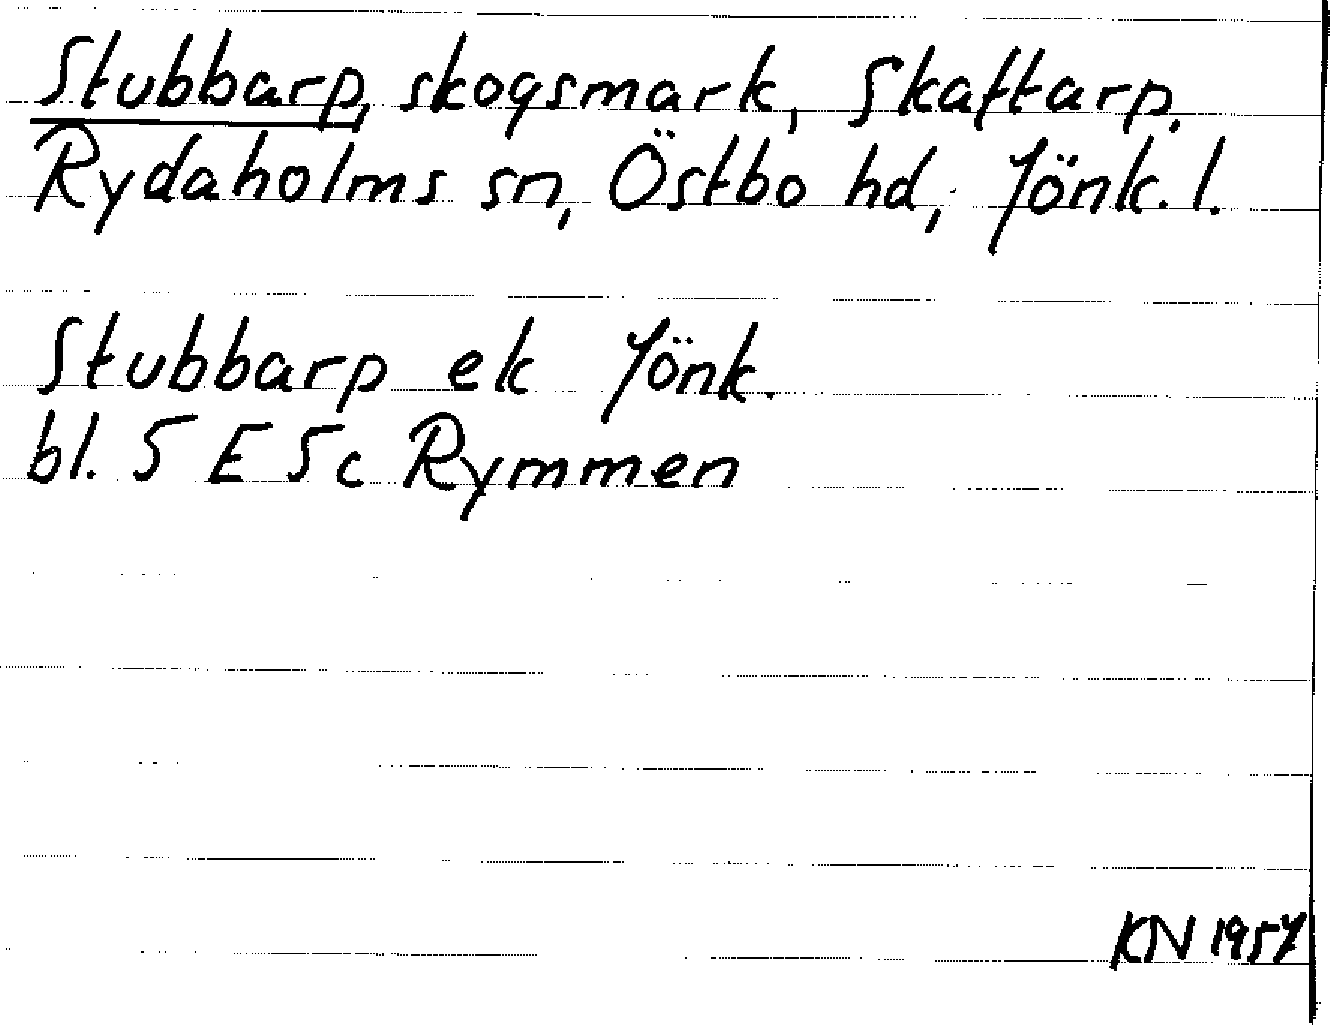 Stubbarp, skogsmark, Skaftarp.
Rydaholms sn, Östbo hd, Jönk. l.
Stubbarp ek Jönk.
bl. 5 E 5c Rymmen
KN 1957